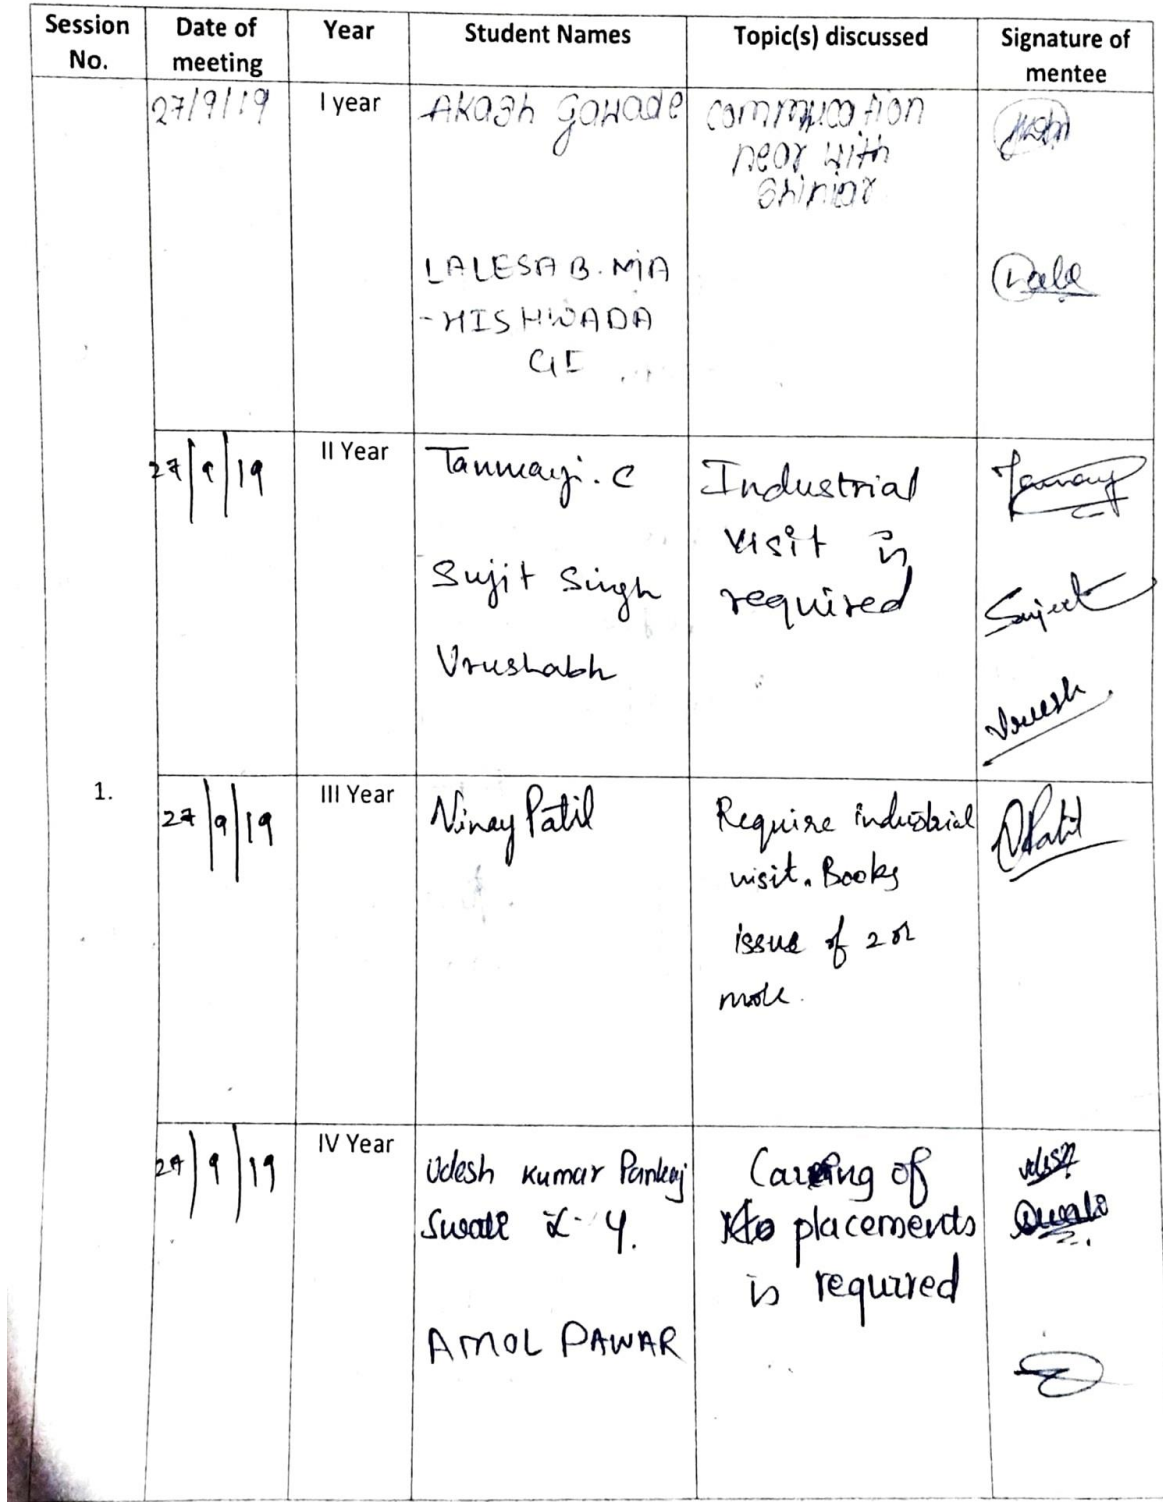 Session No.
Date of meeting
Year
Student Names
Topic(s) discussed
Signature of mentee
1.
27/9/19
I year
Akash Gawade
LALESAB. MA
-HISHWADA
GI
commucation
near with
shinior
27/9/19
II Year
Tanmayi. C
Sujit Singh
Vrushabh
Industrial
visit is
required
Sujeet
Vrush
27/9/19
III Year
Vinay Patil
Require industrial
visit. Books
issue of 2 or
more.
VPatil
27/9/19
IV Year
Udesh Kumar Pankaj
AMOL PAWAR
of
placements
is required